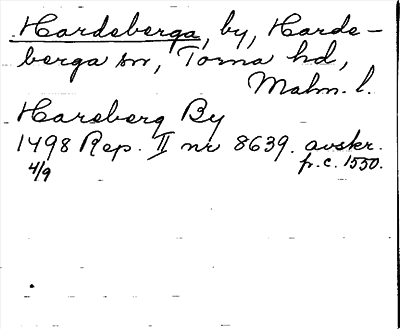 Hardeberga, by, Harde-
berga sn, Torna hd,
Malm. l.
Harsberg By
1498 Rep. II nr 8639. avskr.
4/9 fr. c. 1550.